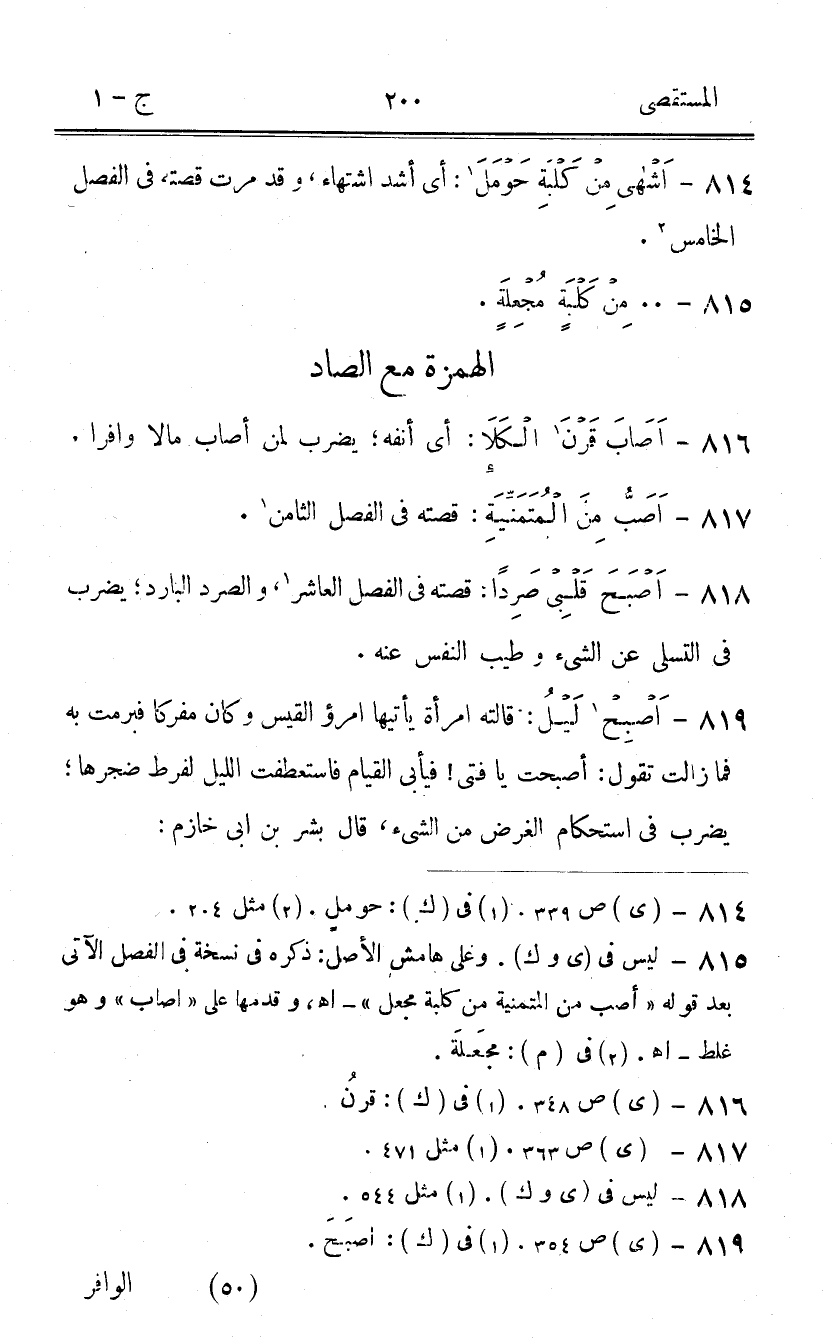 المستقصى ٢٠٠ ج - ١
٨١٤ - أَشْهٰى مِنْ كَلْبَةِ حَوْمَلَ¹: أى أشد اشتهاء، و قد مرت قصته فى الفصل
الخامس² .
٨١٥ - ٠٠ مِنْ كَلْبَةٍ مُجْعِلَةٍ .
الهمزة مع الصاد
٨١٦ - اَصَابَ قَرْنَ¹ الْكَلَأِ: أى أنفه؛ يضرب لمن أصاب مالا وافرا .
٨١٧ - اَصَبُّ مِنَ الْمُتَمَنِّيَةِ: قصته فى الفصل الثامن¹ .
٨١٨ - اَصْبَحَ قَلْبِى صَرِدًا: قصته فى الفصل العاشر¹، و الصرد البارد؛ يضرب
فى التسلى عن الشىء و طيب النفس عنه .
٨١٩ - اَصْبِحْ¹ لَيْلُ: قالته امرأة يأتيها امرؤ القيس وكان مفركا فبرمت به
فما زالت تقول: أصبحت يا فتى! فيأبى القيام فاستعطفت الليل لفرط ضجرها؛
يضرب فى استحكام الغرض من الشىء، قال بشر بن ابى خازم:
٨١٤ - (ى) ص ٣٣٩ . (١) فى (ك): حوملٍ . (٢) مثل ٢٠٤ .
٨١٥ - ليس فى (ى و ك) . وعلى هامش الأصل: ذكره فى نسخة فى الفصل الآتى
بعد قوله « أصب من المتمنية من كلبة مجعل » ـ اه، و قدمها على « اصاب » و هو
غلط ـ اه . (٢) فى (م): مُجَعلَة .
٨١٦ - (ى) ص ٣٤٨ . (١) فى (ك): قرنُ .
٨١٧ - (ى) ص ٣٦٣ . (١) مثل ٤٧١ .
٨١٨ - ليس فى (ى و ك) . (١) مثل ٥٤٤ .
٨١٩ - (ى) ص ٣٥٤ . (١) فى (ك): اصبَحَ .
(٥٠) الوافر